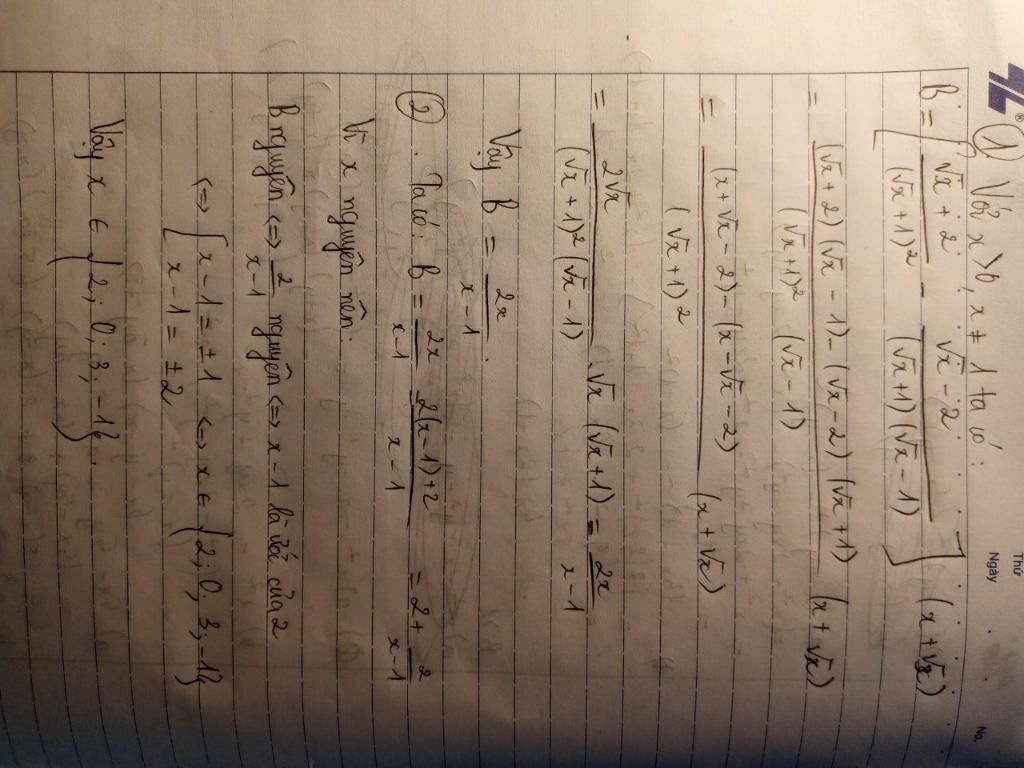 Thứ
Ngày
No.
① Với x > 0, x ≠ 1 ta có:
B = [ (√x + 2)/(√x + 1)² - (√x - 2)/((√x + 1)(√x - 1)) ] . (x + √x)
= ((√x + 2)(√x - 1) - (√x - 2)(√x + 1))/((√x + 1)² (√x - 1)) (x + √x)
= ((x + √x - 2) - (x - √x - 2))/(√x + 1)² (x + √x)
= 2√x/((√x + 1)² (√x - 1)) . √x (√x + 1) = 2x/(x - 1)
Vậy B = 2x/(x - 1).
② . Ta có: B = 2x/(x - 1) = (2(x - 1) + 2)/(x - 1) = 2 + 2/(x - 1)
Vì x nguyên nên.
B nguyên <=> 2/(x - 1) nguyên <=> x - 1 là ước của 2
<=> [ x - 1 = ± 1 <=> x ∈ {2; 0; 3; -1}
x - 1 = ± 2
Vậy x ∈ {2; 0; 3; -1}.